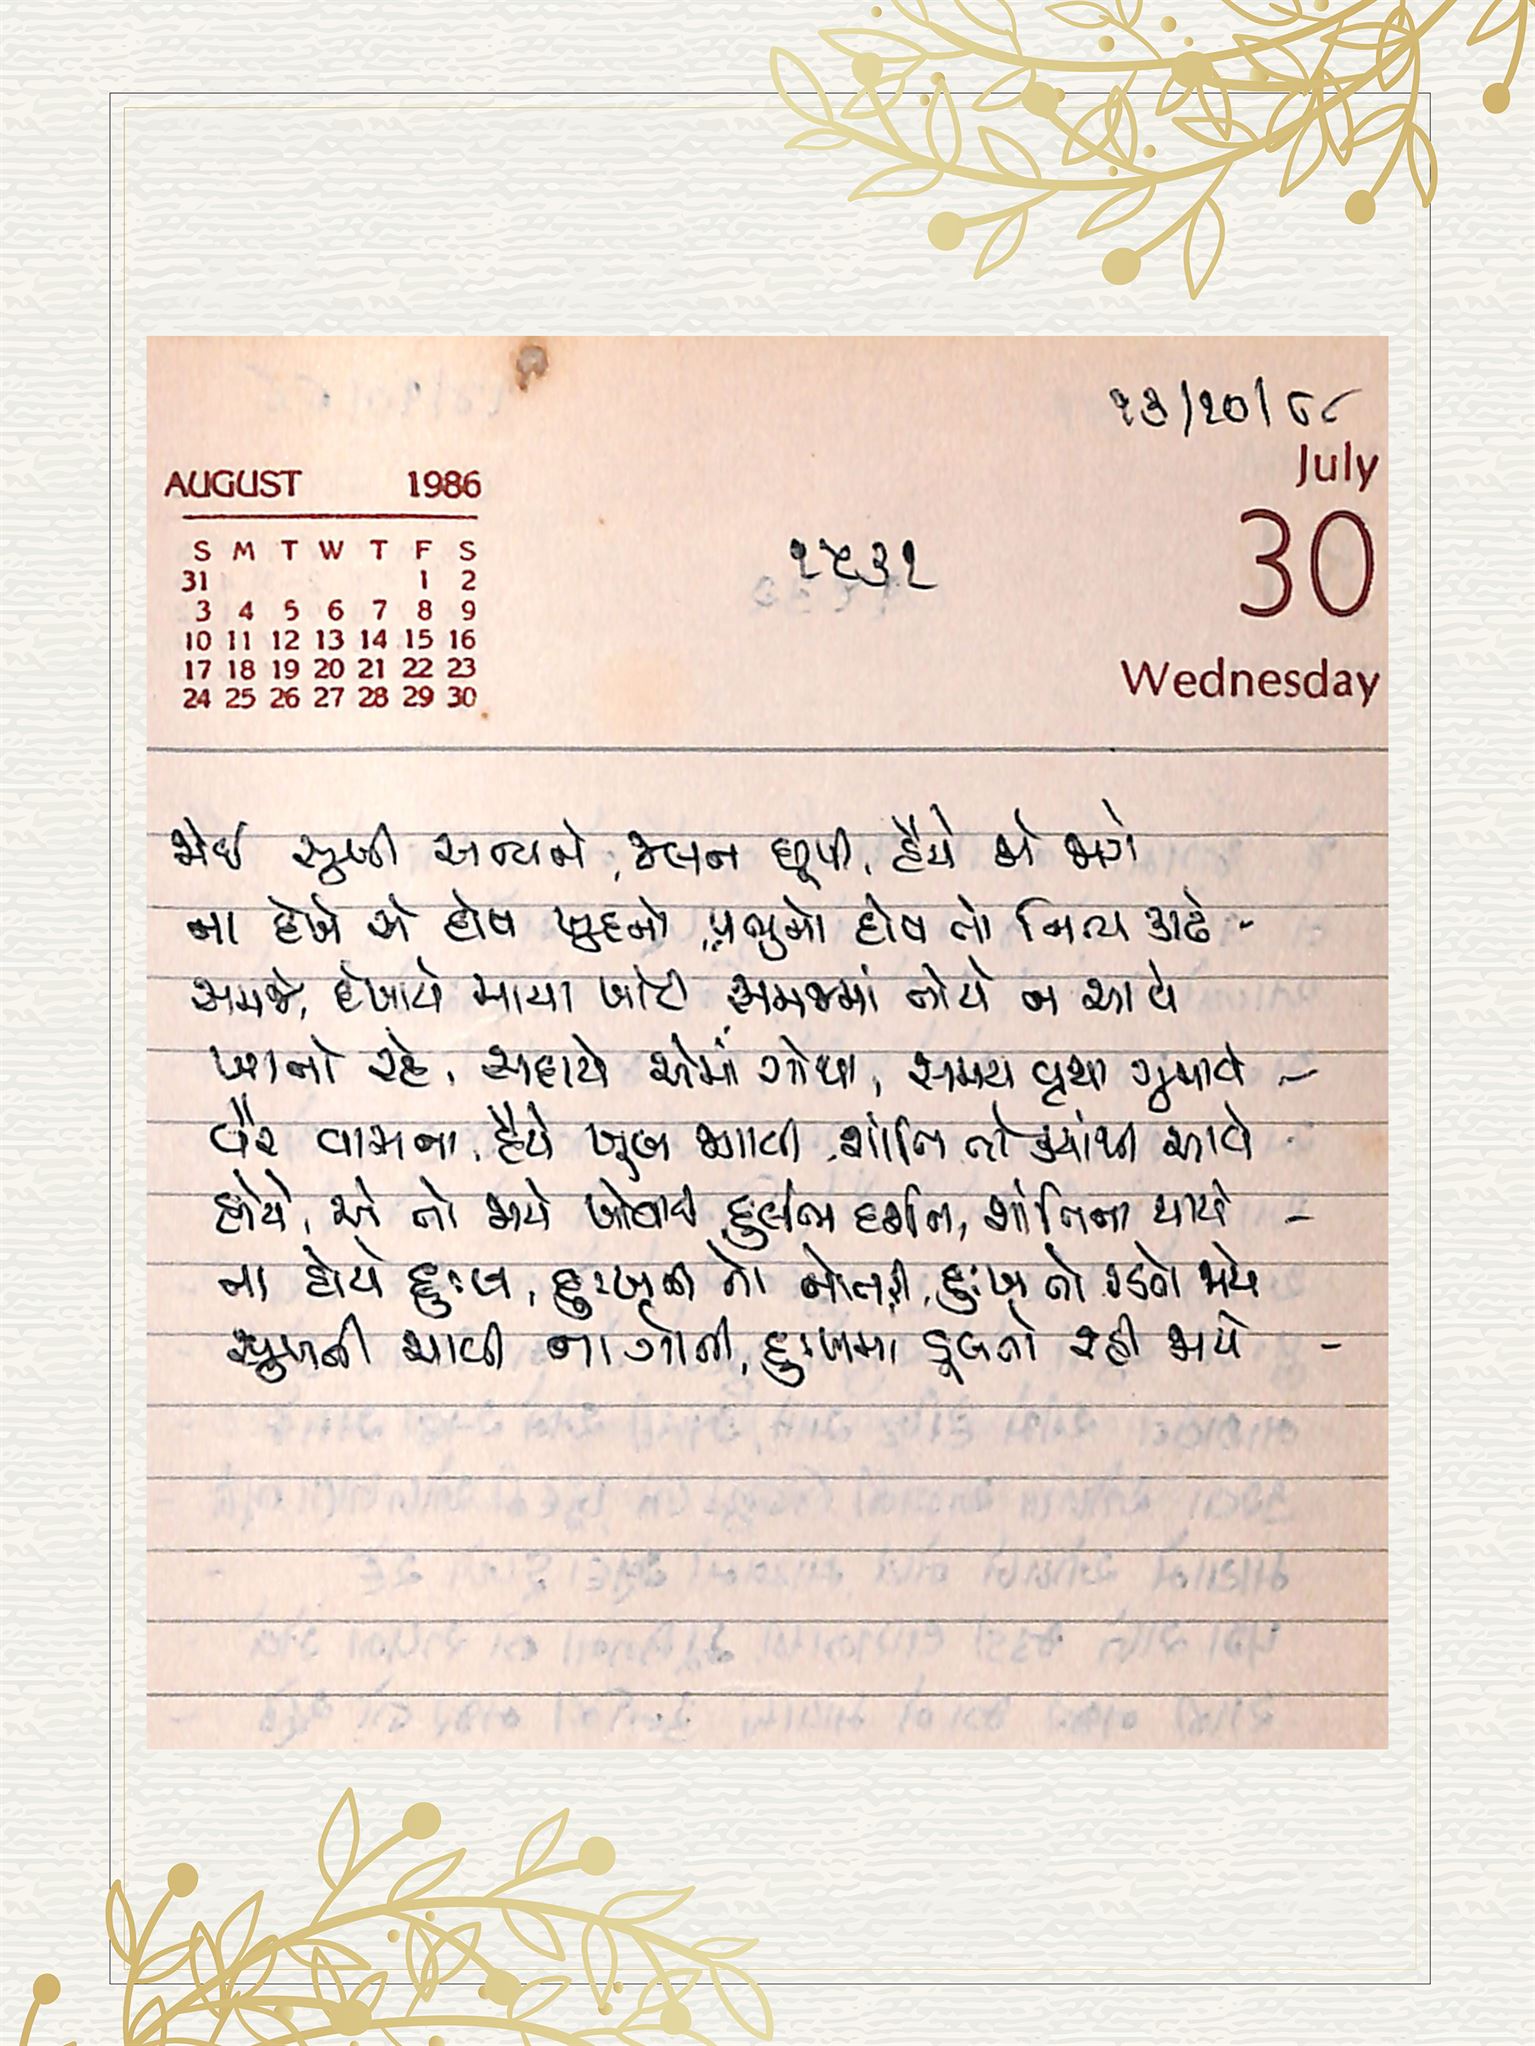 ૧૩/૧૦/૮૮
July
30
Wednesday
AUGUST 1986
S M T W T F S
31 1 2
3 4 5 6 7 8 9
10 11 12 13 14 15 16
17 18 19 20 21 22 23
24 25 26 27 28 29 30
૧૫૩૧
જોઈ સુખી અન્યને, જલન છૂપી, હૈયે જો જાગે
ના દેખે એ દોષ ખુદનો, પ્રભુનો દોષ તો નિત્ય કાઢે -
સમજે, દેખાયે માયા ખોટી સમજમાં તોયે ન આવે
ખાતો રહે, સદાયે એમાં ગોથા, સમય વૃથા ગુમાવે -
વૈર વાસના, હૈયે ખૂબ જાગી, શાંતિ તો ક્યાંથી આવે
હોયે, એ તો જાયે ખોવાઈ, દુર્લભ દર્શન, શાંતિના થાયે -
ના હોયે દુઃખ, દુઃખને તો નોતરી, દુઃખ તો રડતો જાયે
સુખની ચાવી ના ગોતી, દુઃખમાં ડૂબતો રહી જાયે -